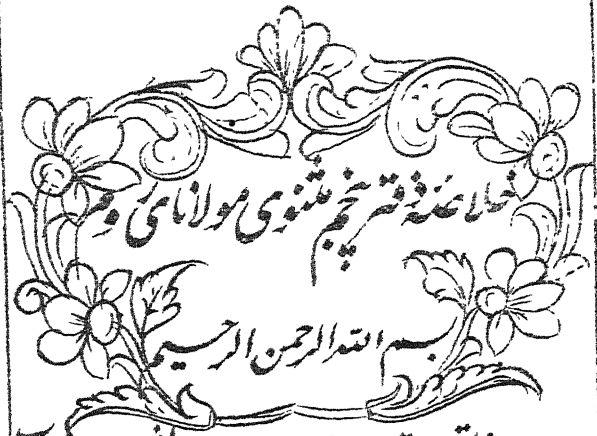 خلاصه دفتر پنجم مثنوی مولانای روم
بسم الله الرحمن الرحیم